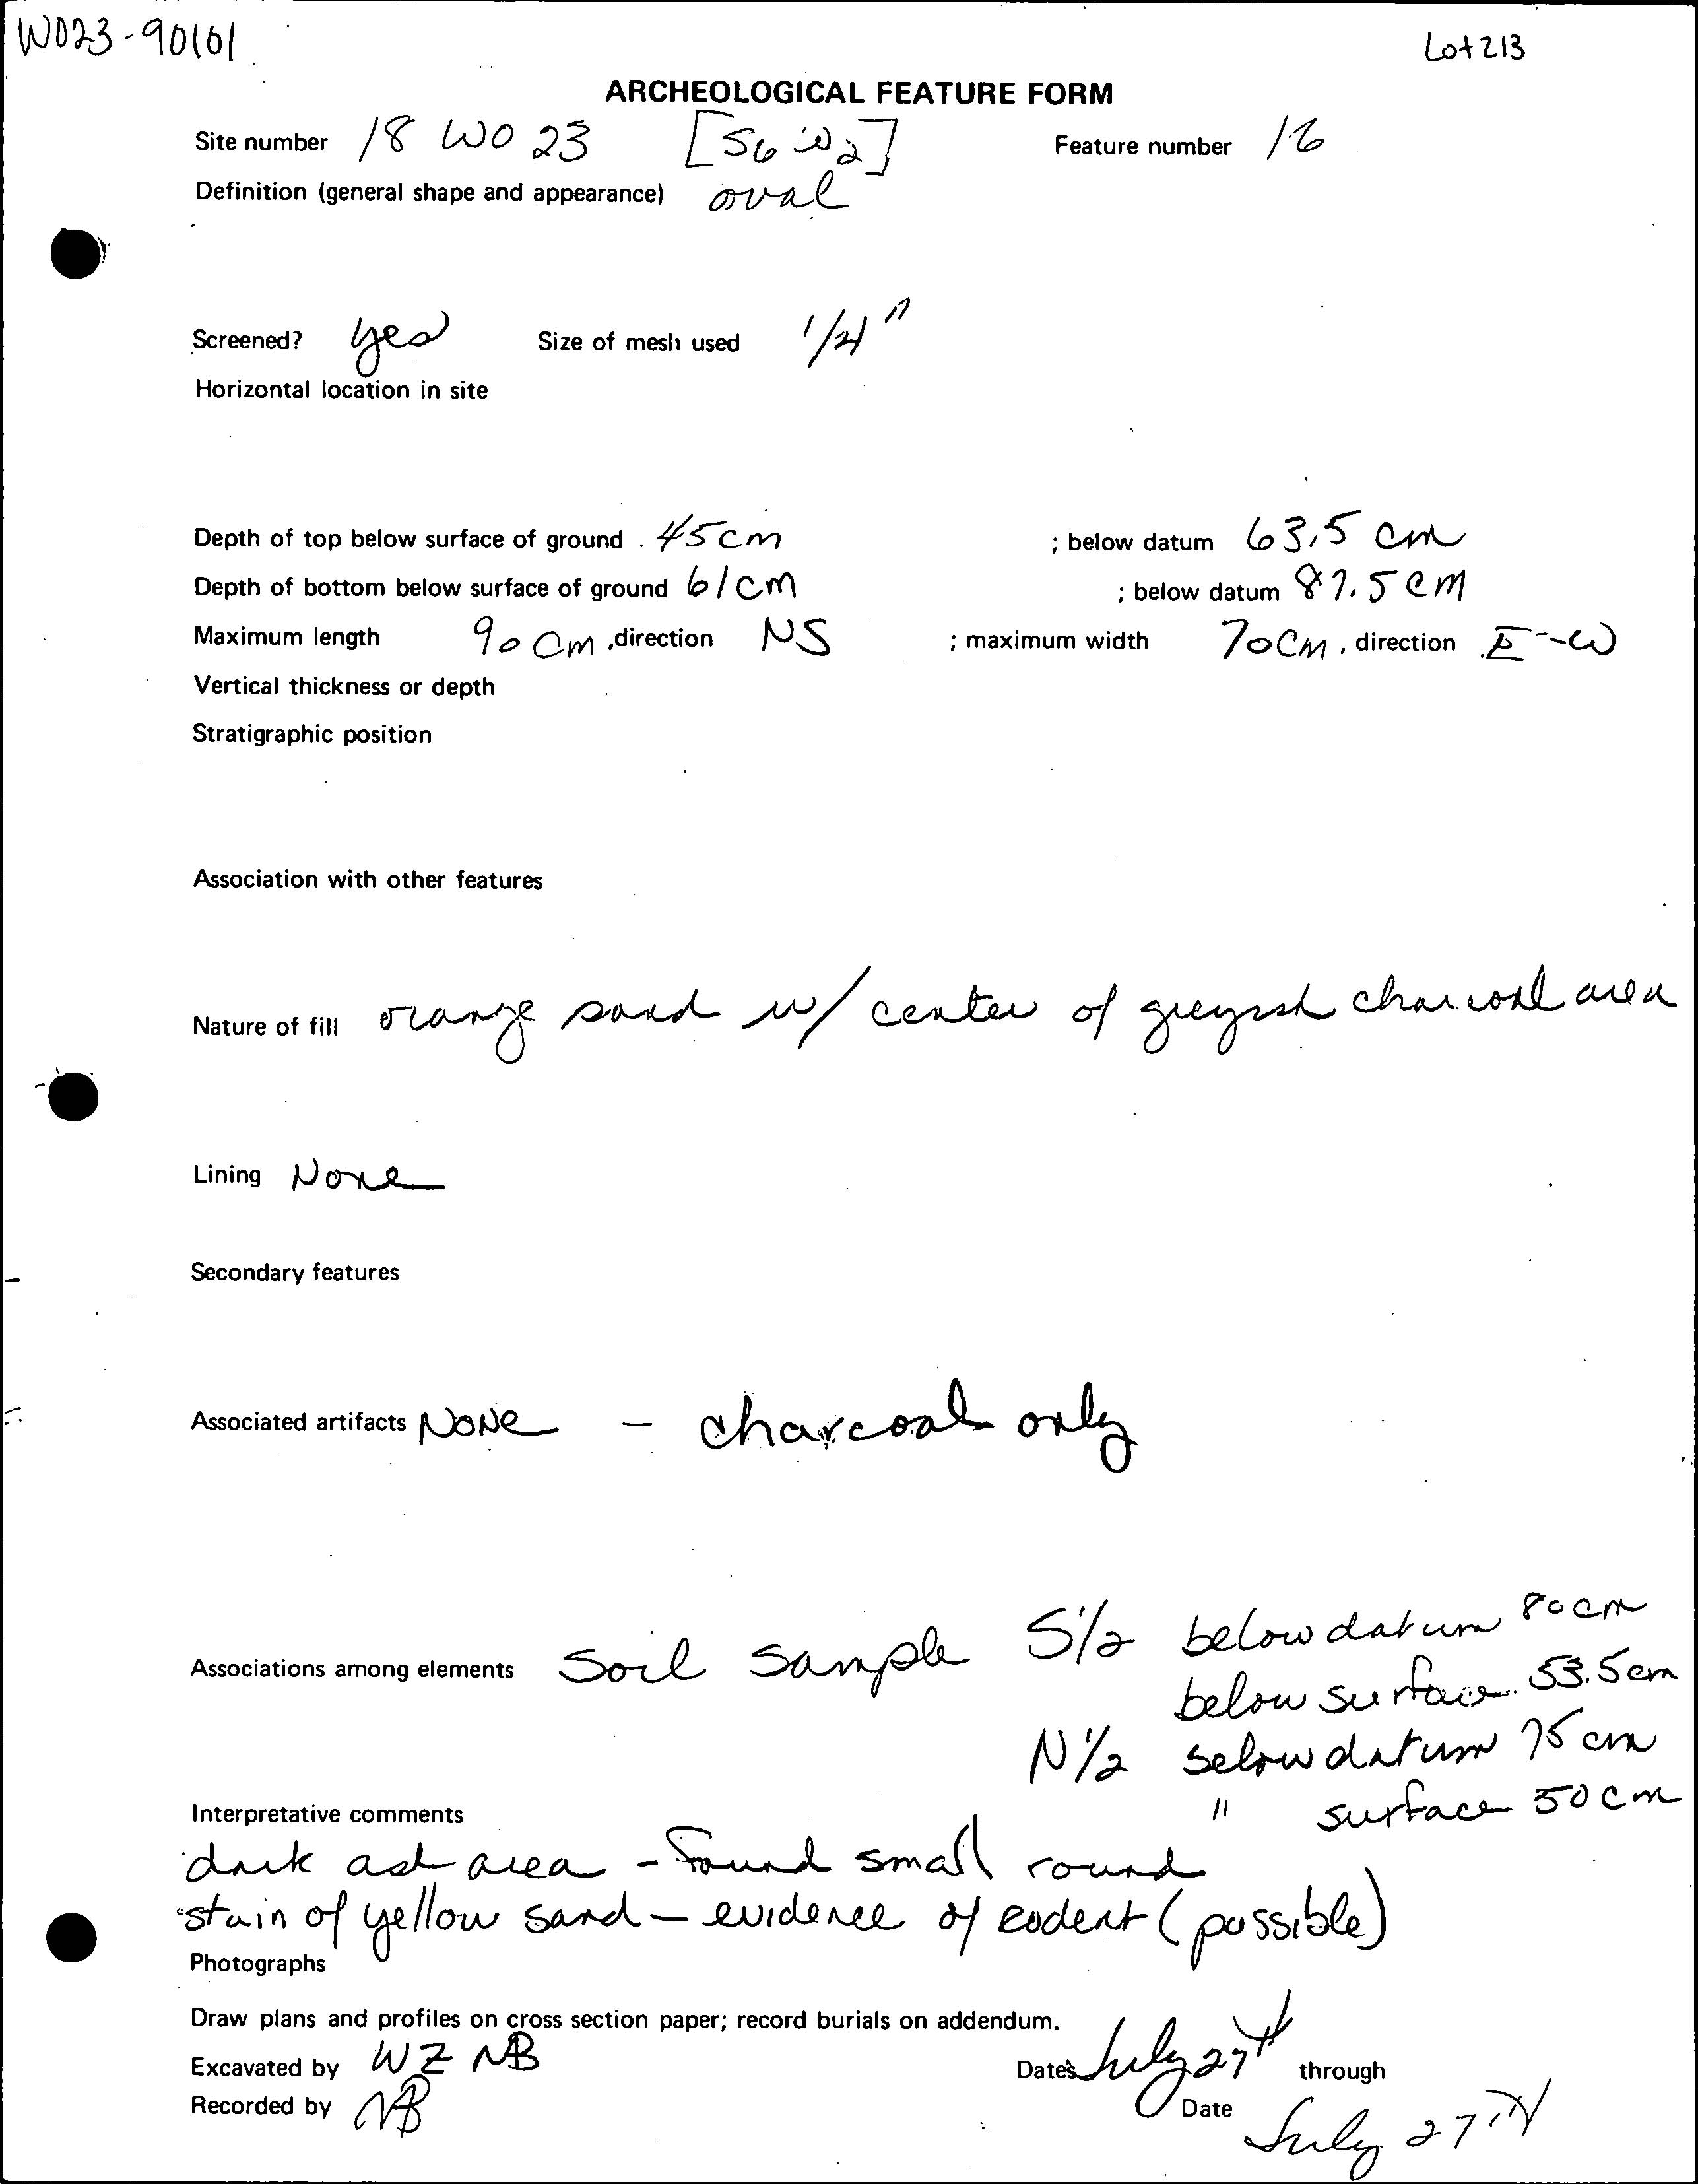 W023-90101
Lot 213
ARCHEOLOGICAL FEATURE FORM
Site number 18 WO 23 [S6 W2] Feature number 16
Definition (general shape and appearance) oval
Screened? yes Size of mesh used 1/4"
Horizontal location in site
Depth of top below surface of ground 45cm ; below datum 63.5 cm
Depth of bottom below surface of ground 61cm ; below datum 87.5 cm
Maximum length 90 cm , direction NS ; maximum width 70cm , direction E--W
Vertical thickness or depth
Stratigraphic position
Association with other features
Nature of fill orange sand w/ center of greyish charcoal area
Lining None
Secondary features
Associated artifacts None - charcoal only
Associations among elements Soil sample S1/2 below datum 80cm
below surface 53.5cm
N1/2 below datum 75 cm
" surface 50cm
Interpretative comments
dark ash area - found small round
stain of yellow sand - evidence of rodent (possible)
Photographs
Draw plans and profiles on cross section paper; record burials on addendum.
Excavated by WZ NB Dates July 27th through
Recorded by NB Date July 27th